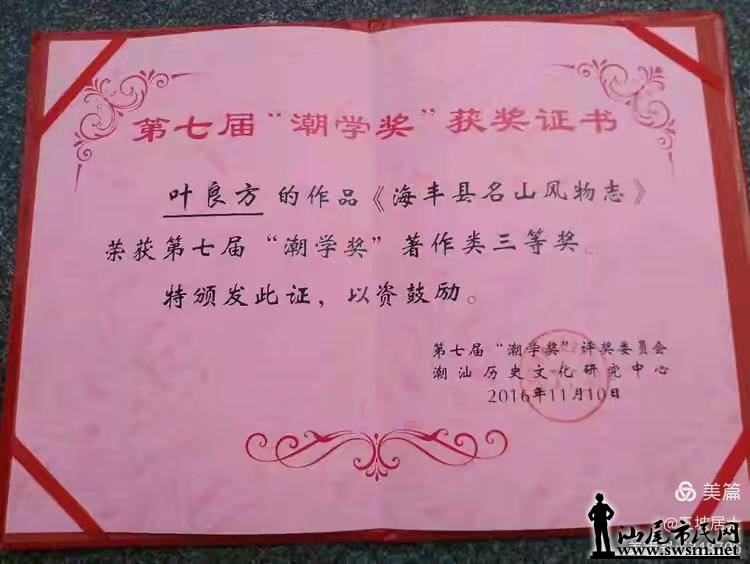 第七届“潮学奖”获奖证书
叶良方的作品《海丰县名山风物志》
荣获第七届“潮学奖”著作类三等奖。
特颁发此证，以资鼓励。
第七届“潮学奖”评奖委员会
潮汕历史文化研究中心
2016年11月10日
美篇
汕尾市民网
www.swsm.net